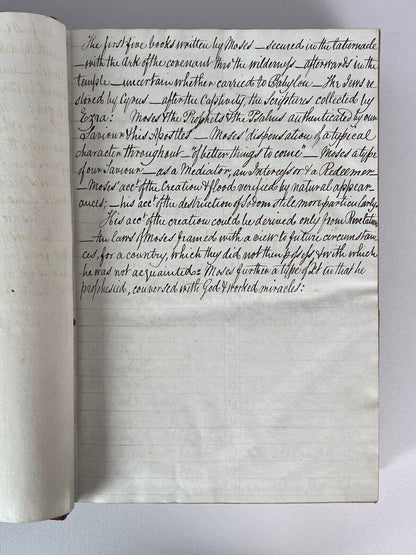 The first five books written by Moses — secured in the tabernacle
— with the Ark of the covenant thro' the wilderness — afterwards in the
temple — uncertain whether carried to Babylon — The Jews re
stored by Cyrus — after the Captivity, the Scriptures collected by
Ezra: Moses & the Prophets & the Psalms authenticated by our
Saviour & his Apostles — Moses' dispensation of a typical
character throughout — "of better things to come" — Moses a type
of our Saviour — as a Mediator, an Intercessor & a Redeemer
— Moses' acct of the Creation & flood verified by natural appear-
ances; — his acct of the destruction of Sodom still more particularly.
His acct of the creation could be derived only from Revelation
— the laws of Moses framed with a view to future circumstan
ces, for a country, which they did not then possess, & with which
he was not acquainted: Moses further a type of in that he
prophesied, conversed with God & worked miracles: